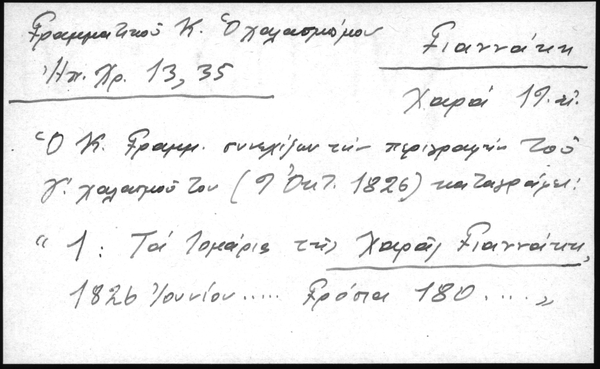 Γραμματικοῦ Κ. Ὁ χαλασμός μου
Ἠπ. Χρ. 13, 35
Γιαννάκη
Χαρά 19. αἰ.
Ὁ Κ. Γραμμ. συνεχίζων τήν περιγραφήν τοῦ
γ΄. χαλασμοῦ του (9 Ὀκτ. 1826) καταγράφει:
" 1: Τά τομάρια τῆς Χαρᾶς Γιαννάκη,
1826 Ἰουνίου..... Γρόσια 180 .... "